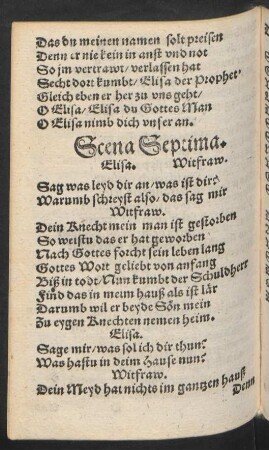 Das du meinen namen solt preisen
Denn er nie kein in anst vnd not
So jm vertrawt/ verlassen hat
Secht dort kumbt/ Elisa der Prophet/
Gleich eben er her zu vns geht/
O Elisa/ Elisa du Gottes Man
O Elisa nimb dich vnser an.
Scena Septima.
Elisa. Witfraw.
Sag was leyd dir an/ was ist dir?
Warumb schreyst also/ das sag mir
Witfraw.
Dein Knecht mein man ist gestorben
So weistu das er hat geworben
Nach Gottes forcht sein leben lang
Gottes Wort geliebt von anfang
Biß in todt/ Nun kumbt der Schuldherr
Find das in meim hauß als ist lär
Darumb wil er beyde Sön mein
Zu eygen Knechten nemen heim.
Elisa.
Sage mir/ was sol ich dir thun?
Was hastu in deim Hause nun?
Witfraw.
Dein Meyd hat nichts im gantzen hauß
Denn